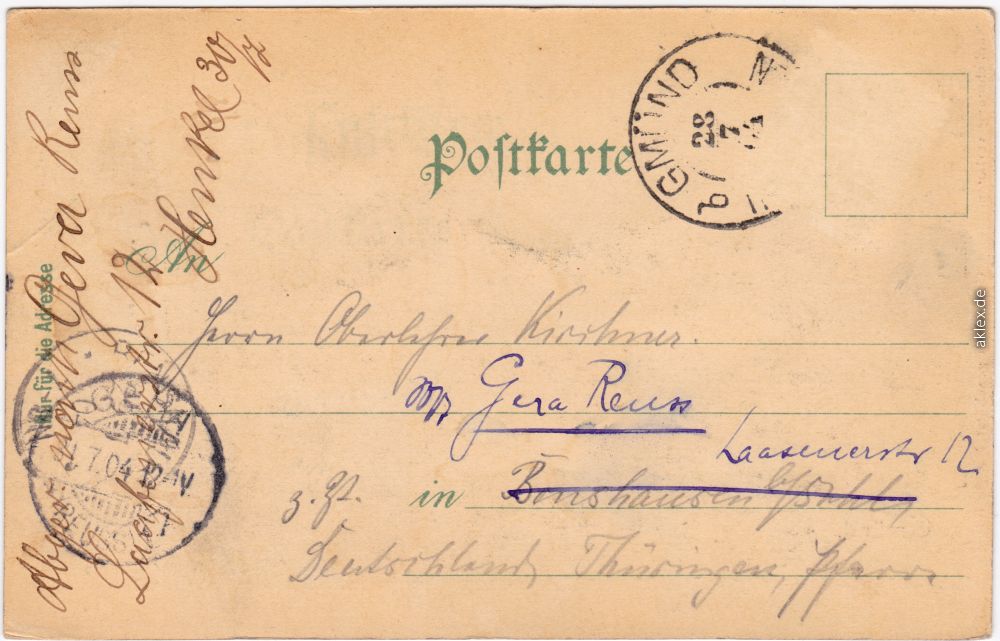 Postkarte
GMÜND
28
7
An
Herrn Oberlehrer Kirchner.
Gera Reuss
Laasenerstr 12
z. Zt. in Benshausen b/Suhl
Deutschland, Thüringen, Pfarre
Nur für die Adresse
nach Gera Reuss
Laasenerstr. 12 Henkel 30/7
GERA
7.04.12-1V.
REUSS
aklex.de